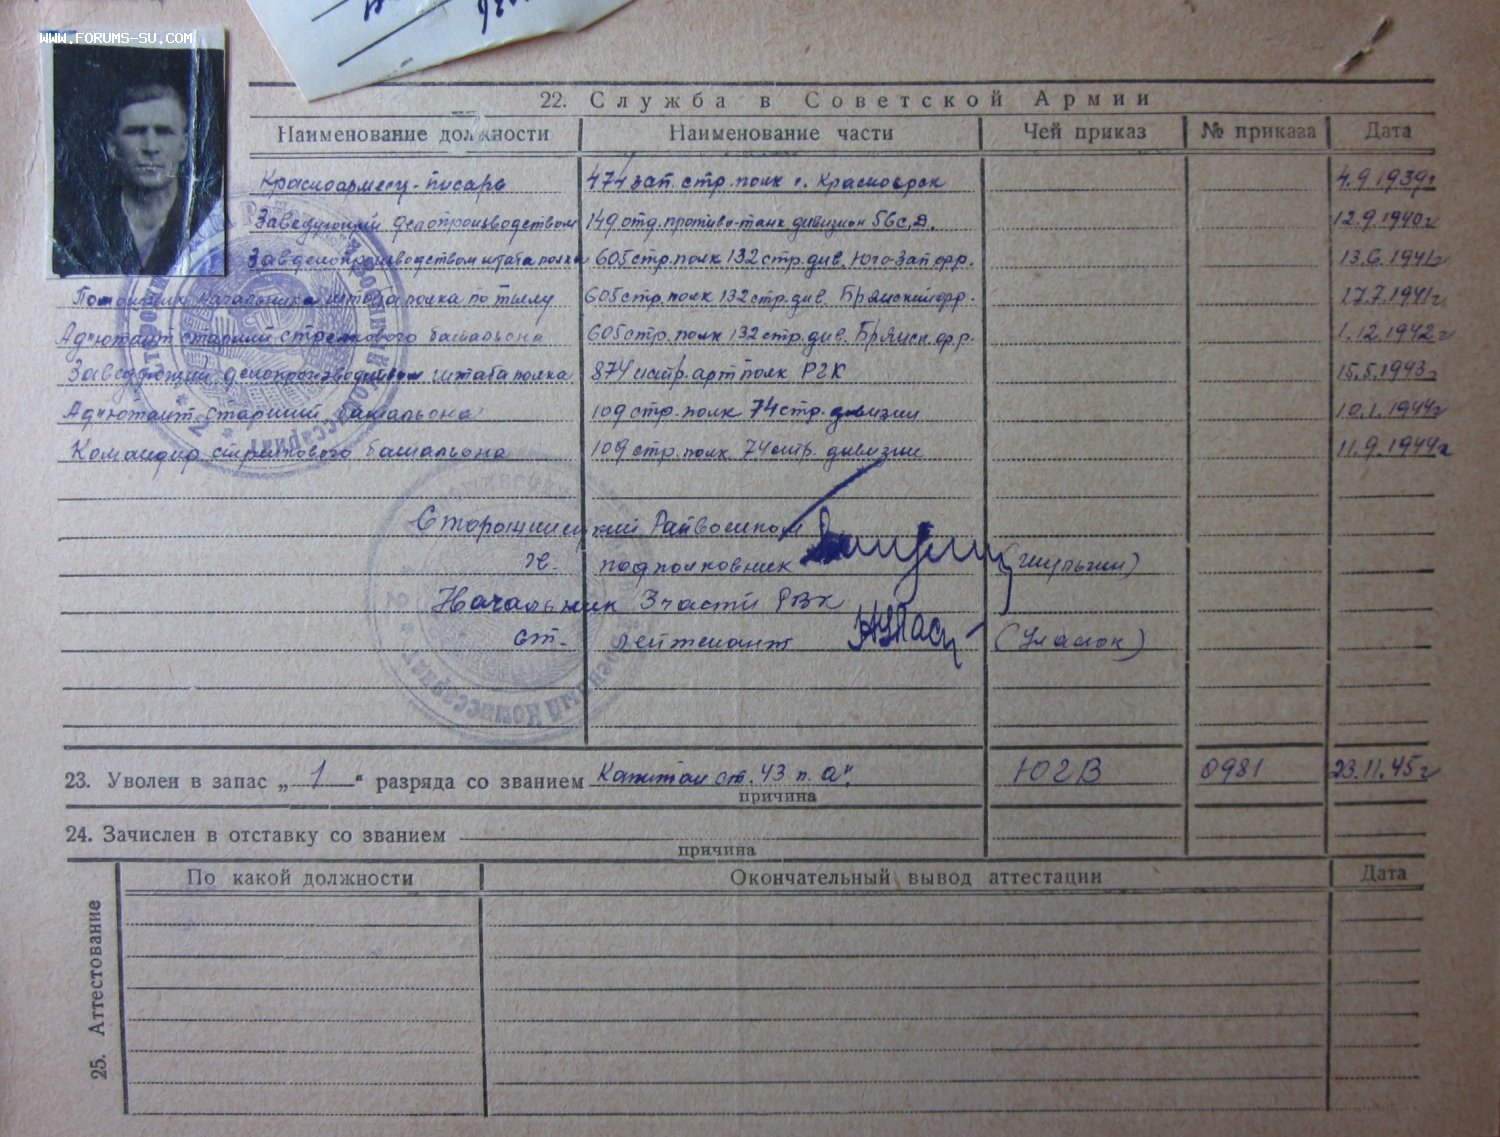 WWW.FORUMS-SU.COM
22. Служба в Советской Армии
Наименование должности Наименование части Чей приказ № приказа Дата
Красноармеец-писарь 474 зап. стр. полк г. Красноярск 4.9.1939г
Заведующий делопроизводством 149 отд. противо-танк дивизион 56 с.д. 12.9.1940г
Зав делопроизводством штаба полка 605 стр. полк 132 стр. див. Юго-Зап фр. 13.6.1941г
Помощник начальника штаба полка по тылу 605 стр. полк 132 стр. див. Брянский фр. 17.7.1941г
Адъютант старший стрелкового батальона 605 стр. полк 132 стр. див. Брянск. фр. 1.12.1942г
Заведующий делопроизводством штаба полка 874 истр. арт полк РГК 15.5.1943г
Адъютант старший батальона 109 стр. полк 74 стр. дивизии 10.1.1944г
Командир стрелкового батальона 109 стр. полк 74 стр. дивизии 11.9.1944г
Сторожинецкий Райвоенком
подполковник
Начальник 3 части РВК
ст. лейтенант (Уласюк)
Военный Комиссариат
23. Уволен в запас „ 1 “ разряда со званием Капитан ст. 43 п. "а". ЮГВ 0981 23.11.45г
причина
24. Зачислен в отставку со званием
причина
25. Аттестование
По какой должности Окончательный вывод аттестации Дата